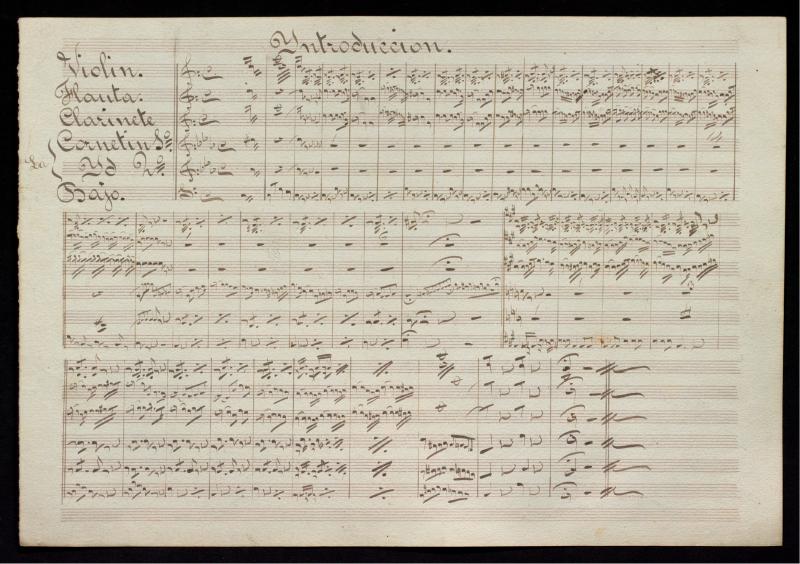 Yntroduccion.
Violin.
Flauta.
Clarinete
Cornetin 1º.
La
Yd 2º.
Bajo.